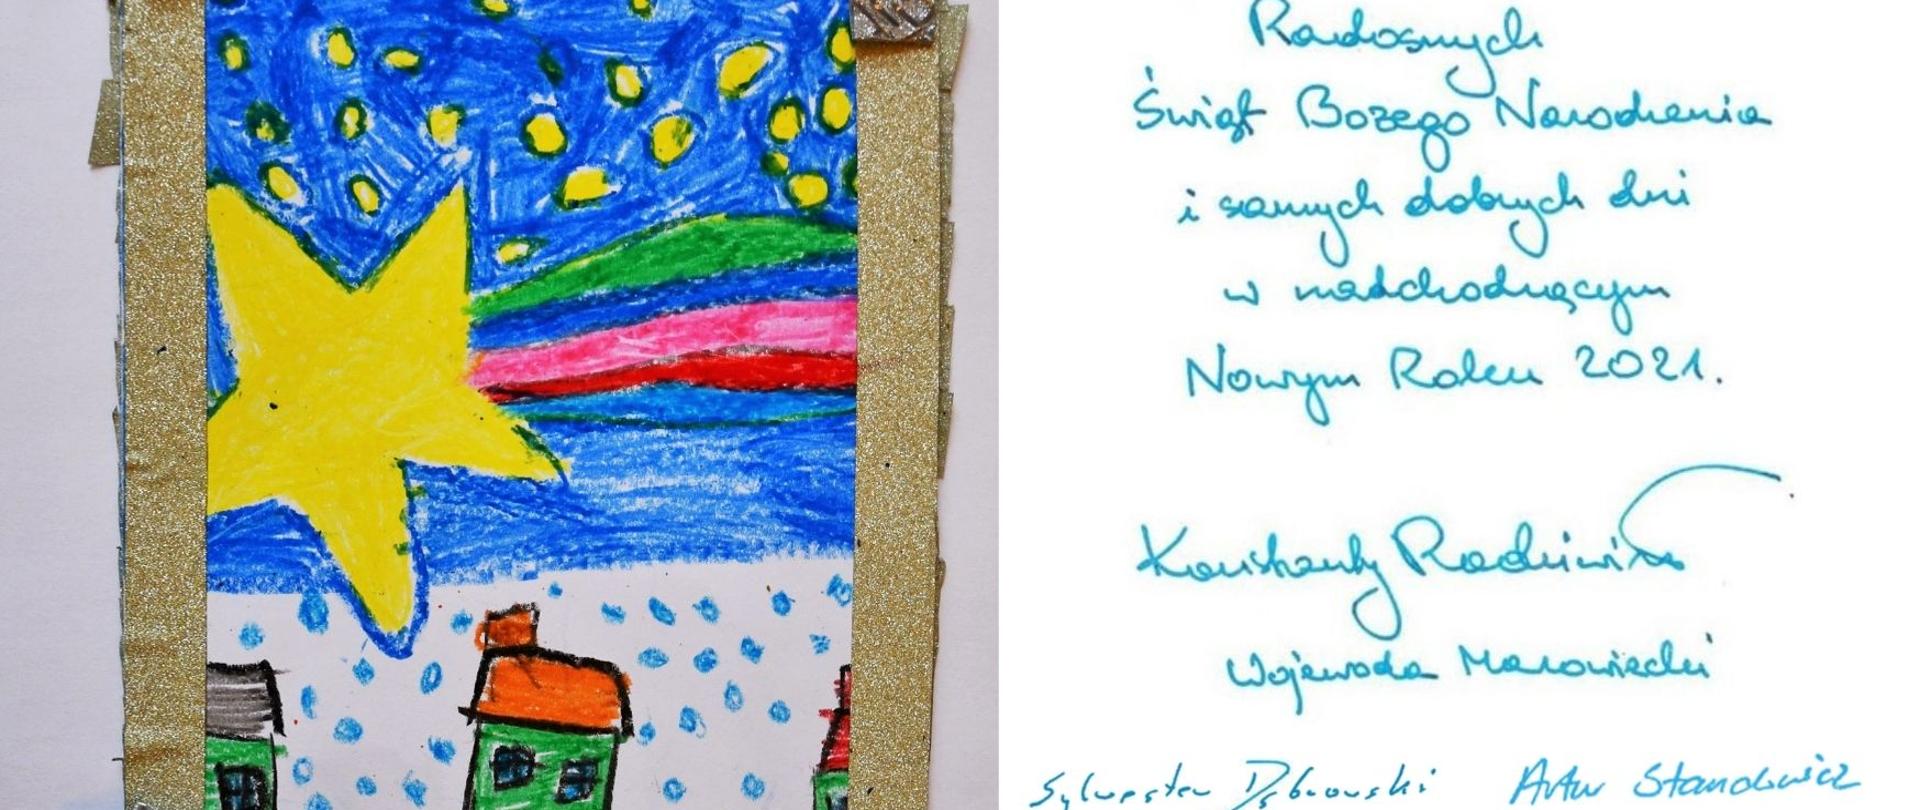 Radosnych
Świąt Bożego Narodzenia
i samych dobrych dni
w nadchodzącym
Nowym Roku 2021.
Konstanty Radziwiłł
Wojewoda Mazowiecki
Sylwester Dąbrowski Artur Standowicz